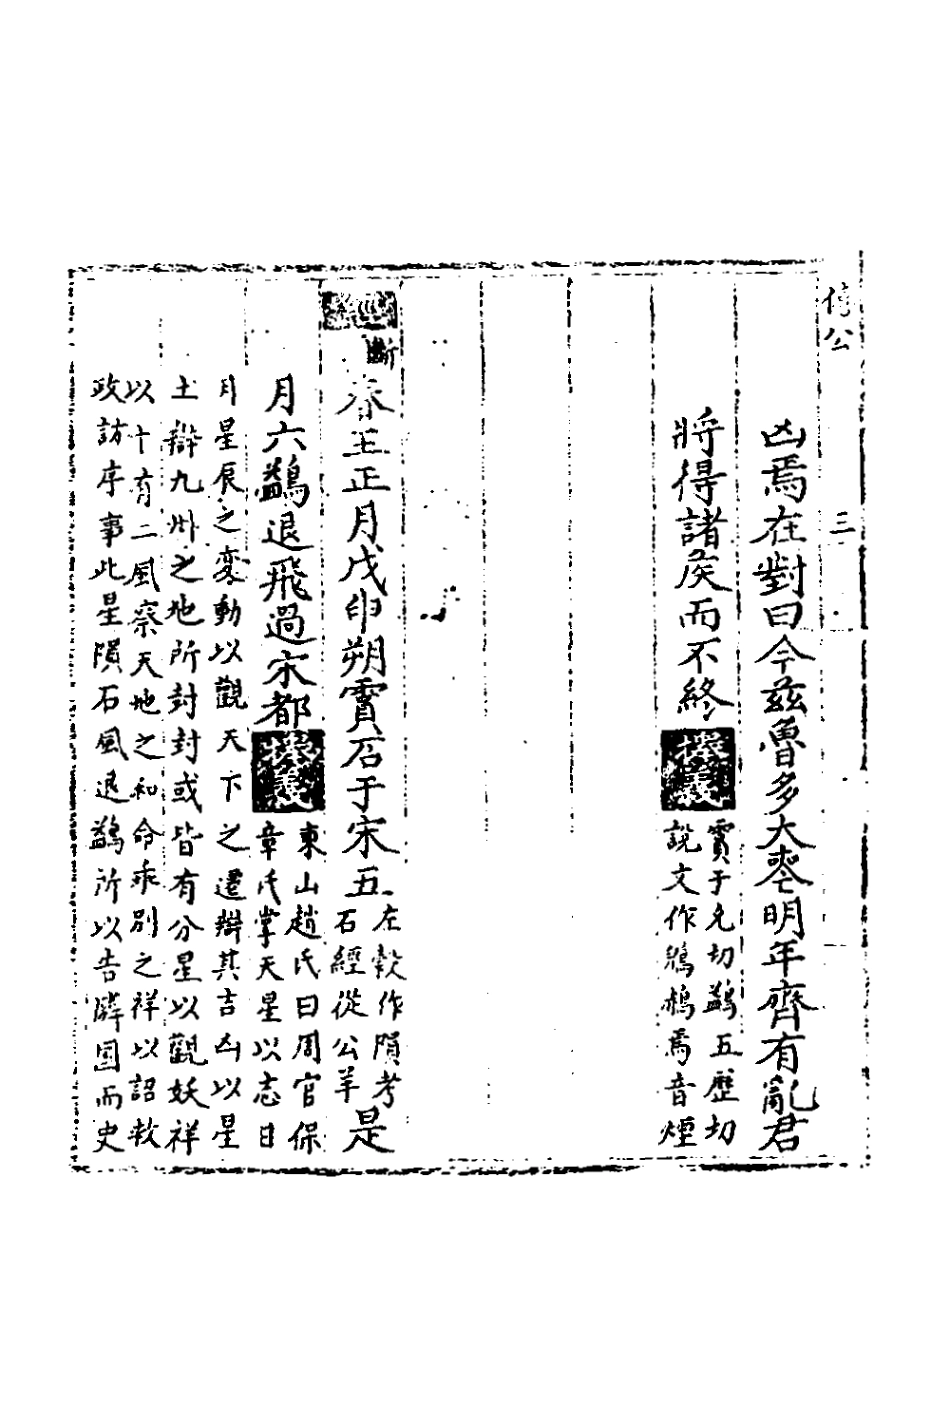 僖公
三
凶焉在對曰今茲魯多大喪明年齊有亂君
將得諸矦而不終
攗義
霣于允切鷁五歷切
說文作鶂鶮焉音煙
斷
春王正月戊申朔霣石于宋五
左穀作隕考
石經從公羊
是
月六鷁退飛過宋都
攗義
東山趙氏曰周官保
章氏掌天星以志日
月星辰之変動以觀天下之遷辯其吉凶以星
土辯九州之地所封封或皆有分星以觀妖祥
以十有二風察天地之和命乖別之祥以詔救
政訪序事此星隕石風退鷁所以告隣國而史